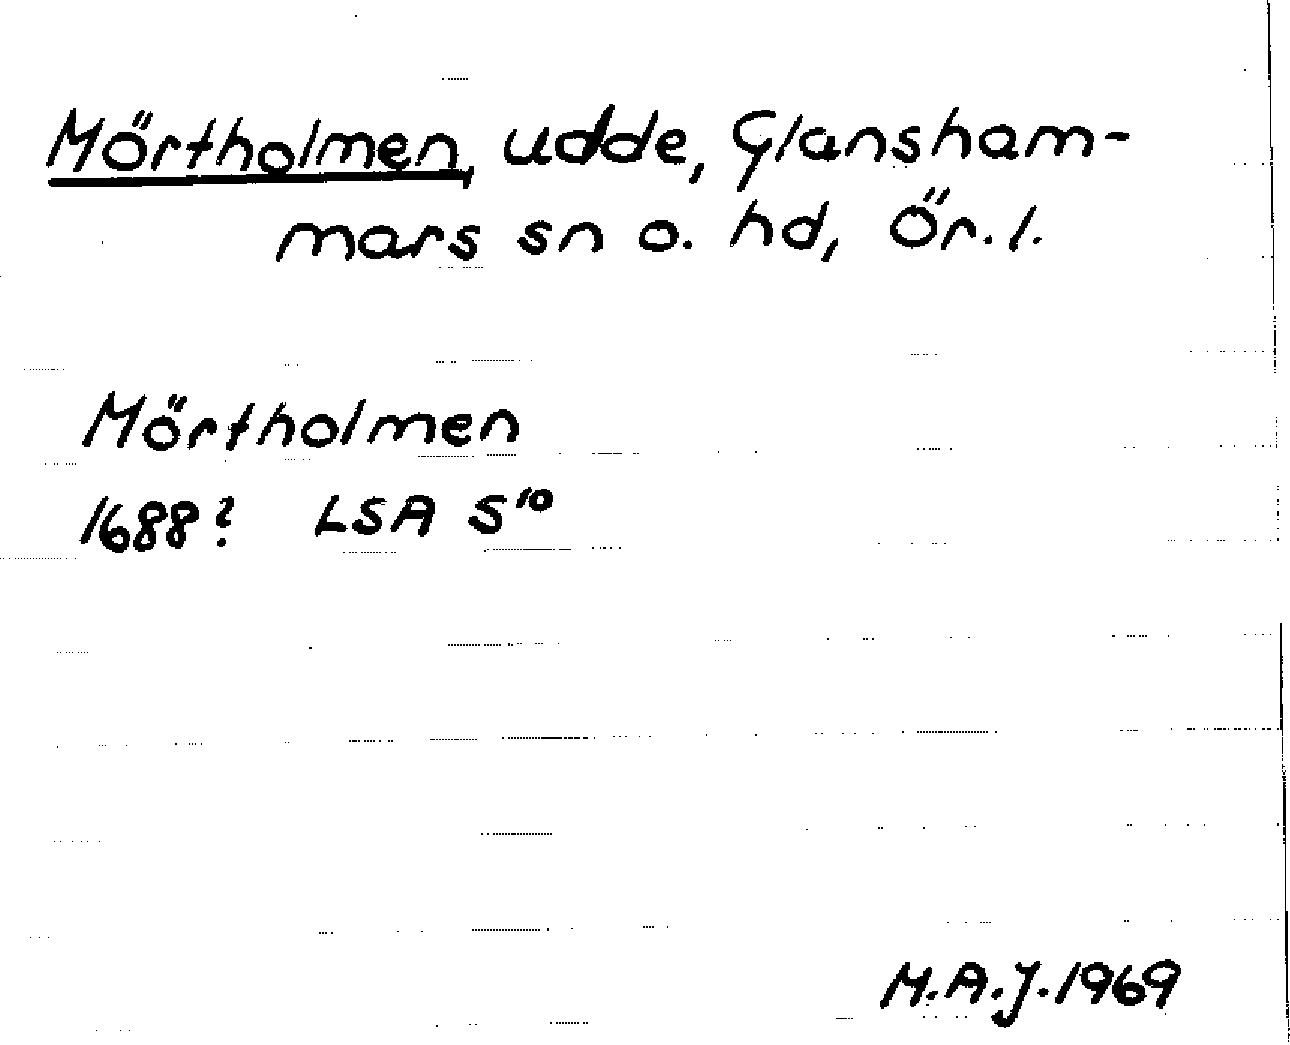 Mörtholmen, udde, Glansham-
mars sn o. hd, Ör. l.
Mörtholmen
1688? LSA S¹⁰
M.A.J. 1969